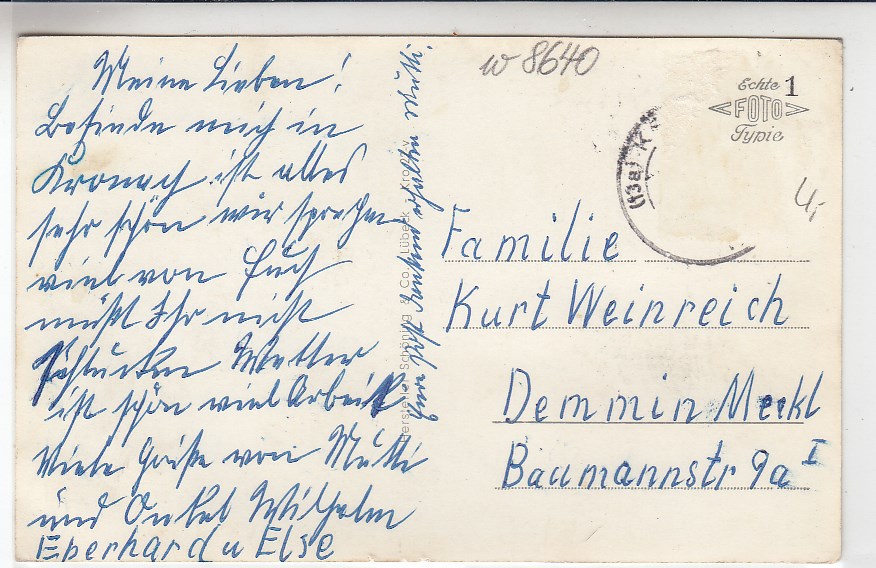 Meine Lieben!
Befinde mich in
Kronach ist alles
sehr schön wir sprechen
viel von Euch
müßt Ihr nicht
Wetter
ist schön viel Arbeit
Viele Grüße von Mutti
und Onkel Wilhelm
Eberhard u Else
Karten erhalten Mutti.
Hersteller: Schöning & Co., Lübeck
w 8640
Echte 1
<FOTO>
Typie
(13a) K
4,-
Familie
Kurt Weinreich
Demmin Meckl
Baumannstr 9a I